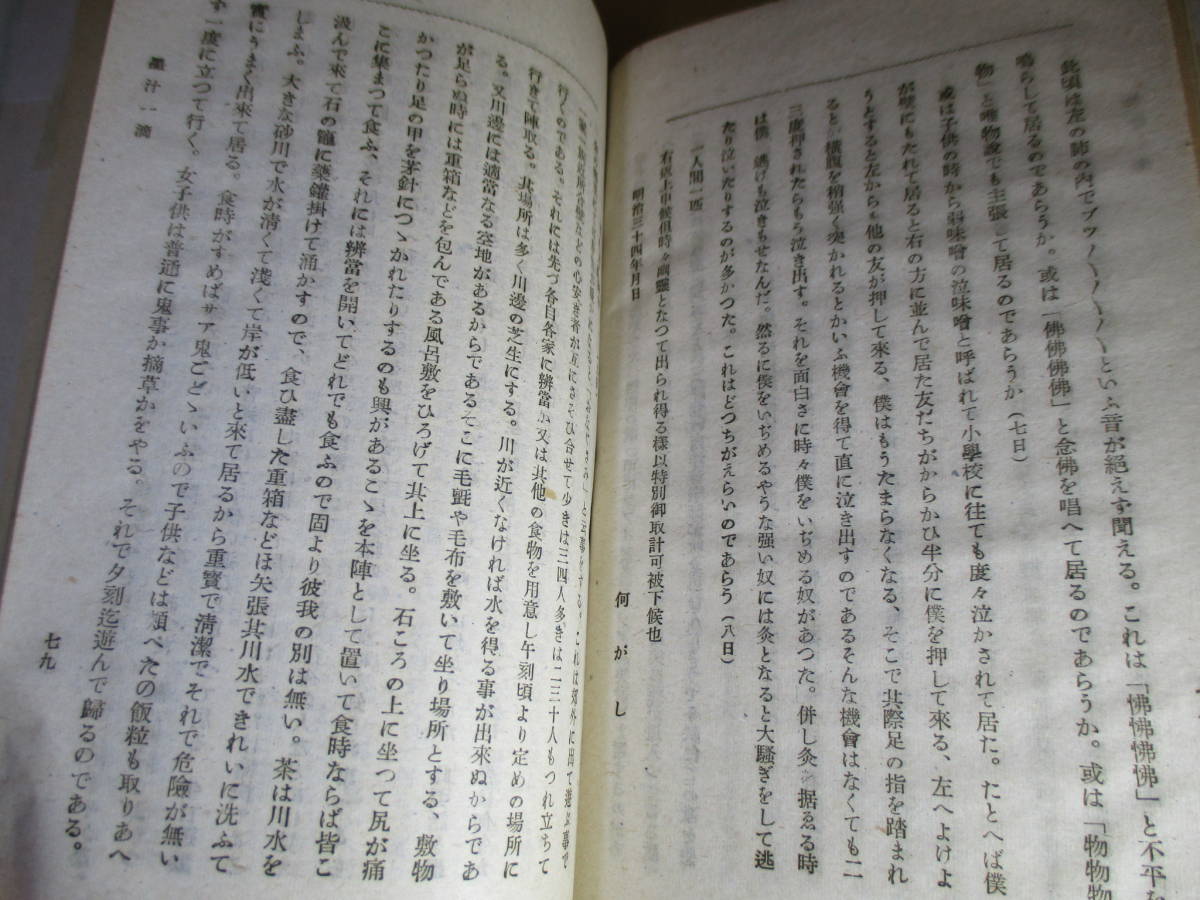 此頃は左の肺の内でブツ〳〵〳〵〳〵といふ音が絕えず聞える。これは「怫怫怫怫」と不平を
鳴らして居るのであらうか。或は「佛佛佛佛」と念佛を唱へて居るのであらうか。或は「物物物
物」と唯物說でも主張して居るのであらうか (七日)
僕は子供の時から弱味噌の泣味噌と呼ばれて小學校に往ても度々泣かされて居た。たとへば僕
が壁にもたれて居ると右の方に並んで居た友だちがからかひ半分に僕を押して來る、左へよけよ
うとすると左からも他の友が押して來る、僕はもうたまらなくなる、そこで其際足の指を踏まれ
るとか橫腹を稍强く突かれるとかいふ機會を得て直に泣き出すのであるそんな機會はなくても二
三度押されたらもう泣き出す。それを面白さに時々僕をいぢめる奴があつた。併し灸を据ゑる時
は僕は逃げも泣きもせなんだ。然るに僕をいぢめるやうな强い奴には灸となると大騒ぎをして逃
たり泣いたりするのが多かつた。これはどつちがえらいのであらう (八日)
一人間一匹
右返上申候但時々幽靈となつて出られ得る樣以特別御取計可被下候也
明治三十四年月日
何がし
行くのである。それには先づ各自各家に辨當か又は其他の食物を用意し午刻頃より定めの場所に
行きて陣取る。其場所は多く川邊の芝生にする。川が近くなければ水を得る事が出來ぬからであ
る。又川邊には適當なる空地があるからであるそこに毛氈や毛布を敷いて坐り場所とする、敷物
が足らぬ時には重箱などを包んである風呂敷をひろげて其上に坐る。石ころの上に坐つて尻が痛
かつたり足の甲を茅針につゝかれたりするのも興があるこゝを本陣として置いて食時ならば皆こ
こに集まつて食ふ、それには辨當を開いてどれでも食ふので固より彼我の別は無い。茶は川水を
汲んで來て石の竈に藥罐掛けて涌かすので、食ひ盡した重箱などは矢張其川水できれいに洗ふて
しまふ。大きな砂川で水が淸くて淺くて岸が低いと來て居るから重寳で淸潔でそれで危險が無い
實にうまく出來て居る。食時がすめばサア鬼ごとゝいふので子供などは頰ぺたの飯粒も取りあへ
ず一度に立つて行く。女子供は普通に鬼事か摘草かをやる。それで夕刻迄遊んで歸るのである。
墨汁一滴
七九